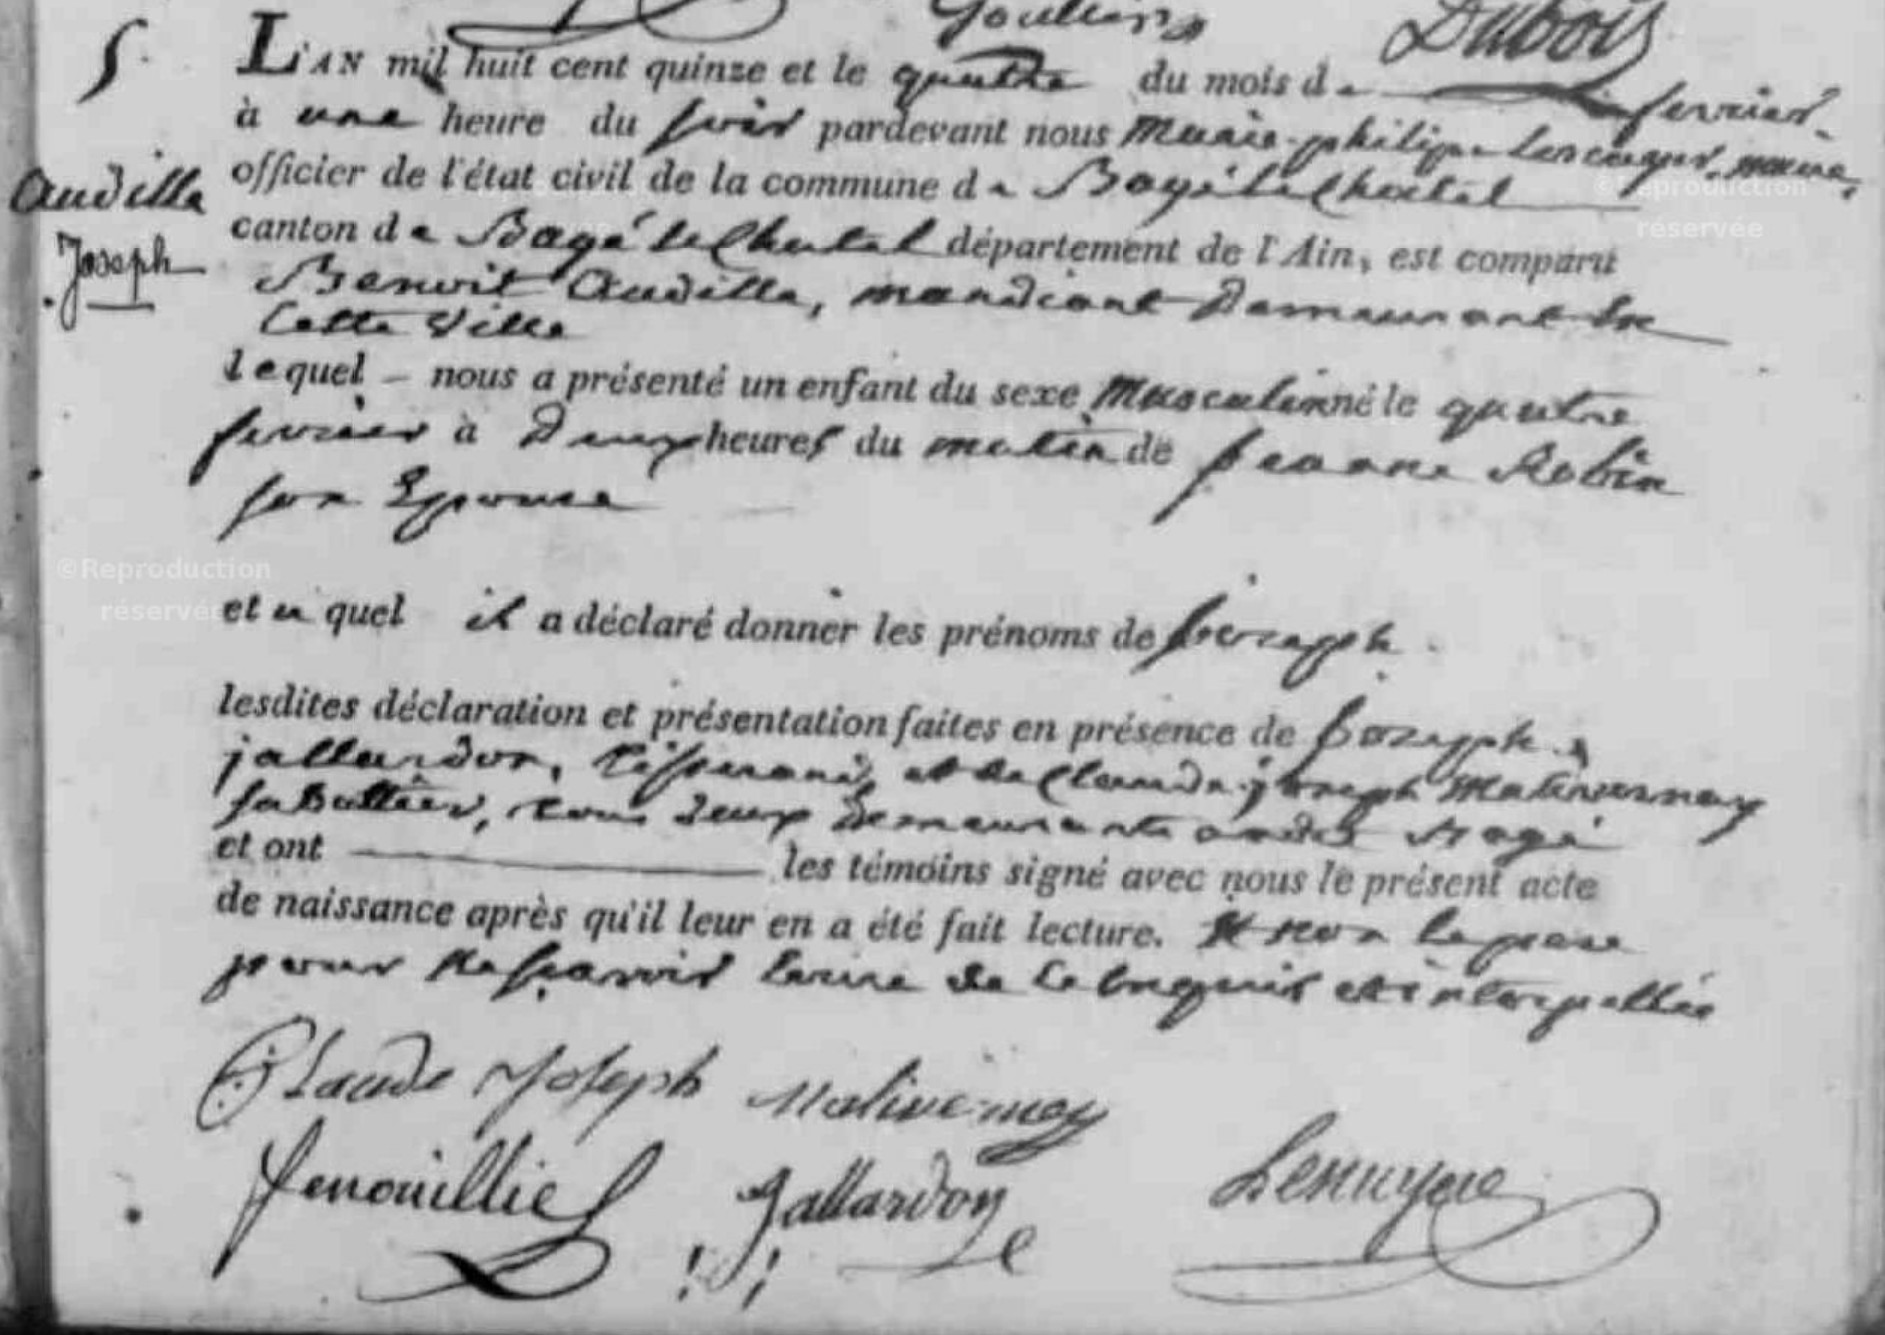 Dubois
5.
L'AN mil huit cent quinze et le quatre du mois de fevrier
à une heure du soir pardevant nous Marie philippe maire,
officier de l'état civil de la commune de Bagé le Chatel
Audilla
Joseph
canton de Bagé le Chatel département de l'Ain, est comparu
Benoit Audilla, mandiant Demeurant En
Cette Ville
lequel nous a présenté un enfant du sexe Masculin né le quatre
fevrier à Deux heures du matin de Jeanne Robin
son Epouse
©Reproduction
réservée
et auquel il a déclaré donner les prénoms de Jozeph
lesdites déclaration et présentation faites en présence de Jozeph
jallardon, et de Claude joseph Malivernay
sabottier, tous deux Demeurants audit Bagé
et ont les témoins signé avec nous le présent acte
de naissance après qu'il leur en a été fait lecture. Et non le pere
pour ne scavoir Ecrire de Ce Enquis et interpellée
Claude Joseph Malivernay
fenouillie Jallardon
©Reproduction
réservée